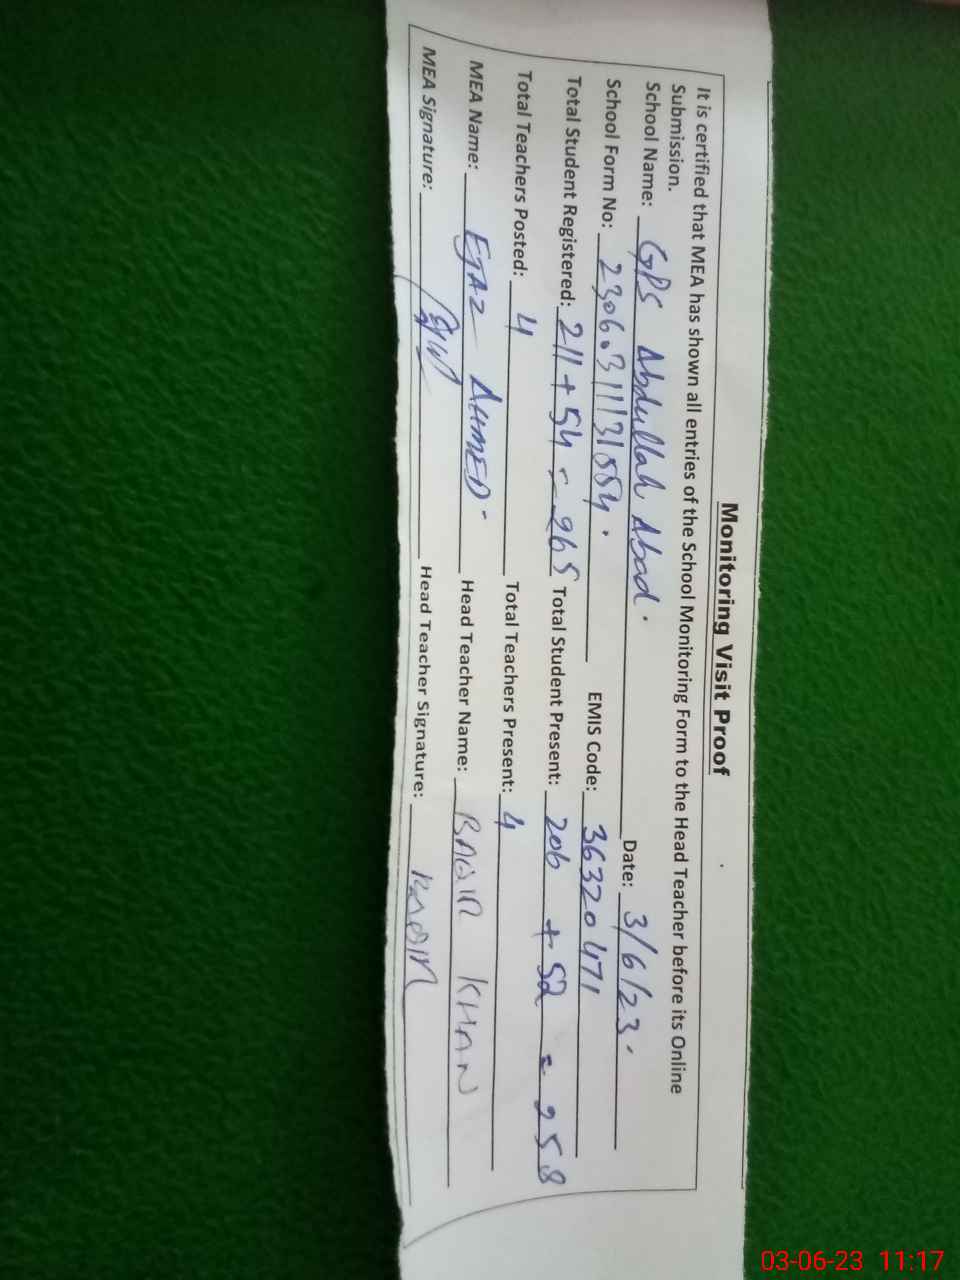 Monitoring Visit Proof
It is certified that MEA has shown all entries of the School Monitoring Form to the Head Teacher before its Online
Submission.
School Name: GPS Abdullah Abad. Date: 3/6/23.
School Form No: 2306.311131554. EMIS Code: 36320471
Total Student Registered: 211 + 54 = 265 Total Student Present: 206 + 52 = 258
Total Teachers Posted: 4 Total Teachers Present: 4
MEA Name: EJAZ AHMED. Head Teacher Name: BAQIR KHAN
MEA Signature: Head Teacher Signature: BAQIR
03-06-23 11:17